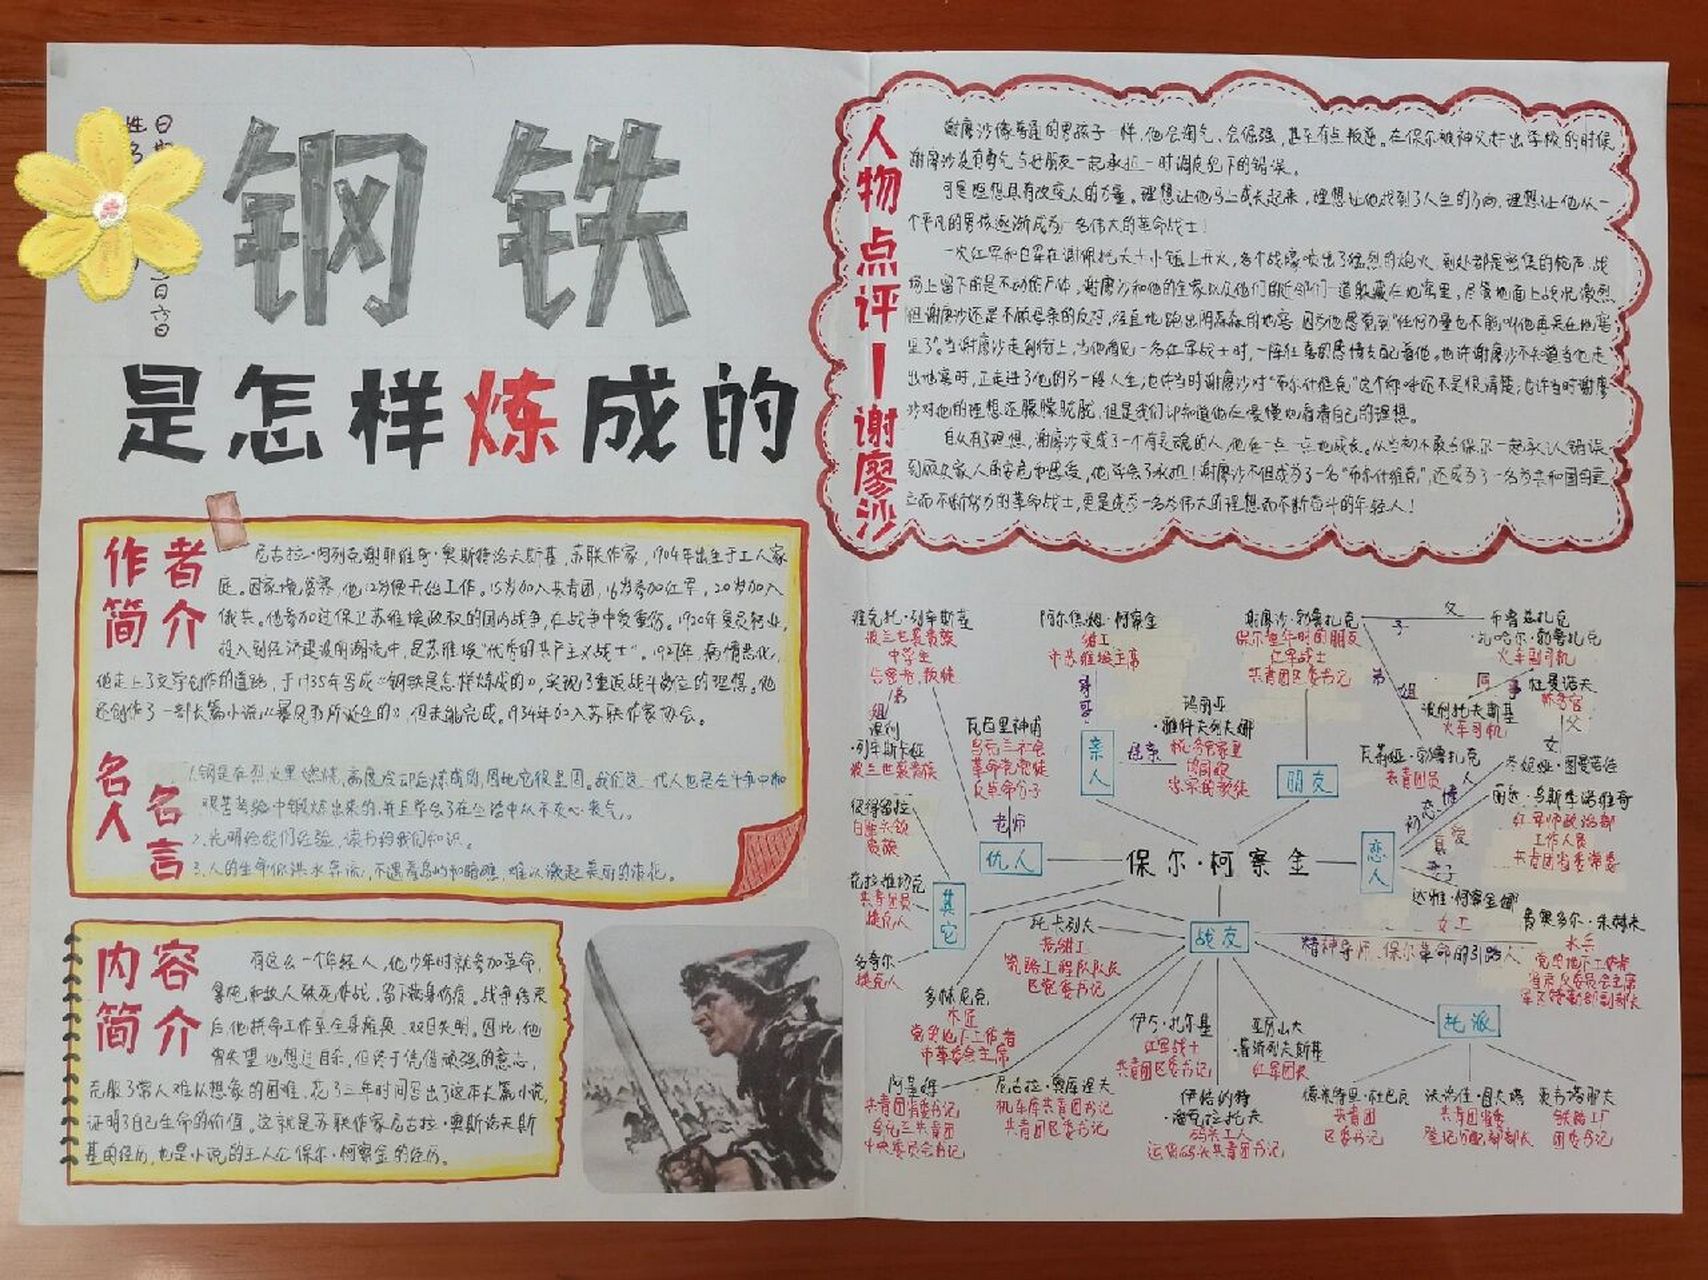 钢铁
是怎样炼成的
作者简介
尼古拉·阿列克谢耶维奇·奥斯特洛夫斯基,苏联作家,1904年出生于工人家
庭。因家境贫寒,他12岁便开始工作。15岁加入共青团,16岁参加红军,20岁加入
俄共。他参加过保卫苏维埃政权的国内战争,在战争中受重伤。1920年复员转业,
投入到经济建设的潮流中,是苏维埃“优秀的共产主义战士”。1927年,病情恶化,
他走上了文学创作的道路,于1935年写成《钢铁是怎样炼成的》,实现了重返战斗岗位的理想。他
还创作了一部长篇小说《暴风雨所诞生的》,但未能完成。1934年加入苏联作家协会。
名人名言
1.钢是在烈火里燃烧,高度冷却后炼成的,因此它很坚固。我们这一代人也是在斗争中和
艰苦考验中锻炼出来的,并且学会了在生活中从不灰心丧气。
2.光明给我们经验,读书给我们知识。
3.人的生命似洪水奔流,不遇着岛屿和暗礁,难以激起美丽的浪花。
内容简介
有这么一个年轻人,他少年时就参加革命,
拿枪和敌人殊死作战,留下满身伤痕。战争结束
后,他拼命工作至全身瘫痪、双目失明。因此,他
失望地想过自杀,但终于凭借顽强的意志,
克服了常人难以想象的困难,花了三年时间写出了这本长篇小说,
证明了自己生命的价值。这就是苏联作家尼古拉·奥斯洛夫斯
基的经历,也是小说的主人公保尔·柯察金的经历。
人物点评—谢廖沙
谢廖沙像普通的男孩子一样,他会淘气、会倔强,甚至有点叛逆。在保尔被神父赶出学校的时候,
谢廖沙没有勇气与好朋友一起承担一时调皮犯下的错误。
可是理想具有改变人的力量。理想让他马上成长起来,理想让他找到了人生的方向,理想让他从一
个平凡的男孩逐渐成为一名伟大的革命战士!
一次红军和白军在谢佩托夫卡小镇上开火,各个战壕喷出了猛烈的炮火,到处都是密集的枪声,战
场上留下的是不动的尸体,谢廖沙和他的全家以及他们的邻居们一道躲藏在地窖里,尽管地面上战况激烈
但谢廖沙还是不顾母亲的反对,径直地跑出阴森森的地窖,因为他感觉到“任何力量也不能叫他再呆在地窖
里了”。当谢廖沙走到街上,当他看见一名红军战士时,一阵狂喜的感情支配着他。也许谢廖沙不知道当他走
出地窖时,正走进了他的另一段人生;也许当时谢廖沙对“布尔什维克”这个称呼还不是很清楚;也许当时谢廖
沙对他的理想还朦朦胧胧,但是我们却知道他在慢慢地有着自己的理想。
自从有了理想,谢廖沙变成了一个有灵魂的人,他在一点一点地成长。从当初不敢与保尔一起承认错误,
到顾及家人的安危和感受,他学会了承担!谢廖沙不但成为了一名“布尔什维克”,还成为了一名为共和国的建
立而不断努力的革命战士,更是成为一名为伟大的理想而不断奋斗的年轻人!
维克托·列辛斯基
波兰世袭贵族
中学生
告密者、叛徒
阿尔焦姆·柯察金
钳工
市苏维埃主席
谢廖沙·勃鲁扎克
保尔童年时的朋友
红军战士
共青团区委书记
父
子
布鲁兹扎克
·扎哈尔·勃鲁扎克
火车副司机
弟
姐
同
事
杜曼诺夫
林务官
波利托夫斯基
火车司机
父
女
涅利
·列辛斯卡娅
波兰世袭贵族
瓦西里神甫
老师
哥哥
亲人
母亲
玛丽亚
·雅科夫列夫娜
朋友
瓦莉娅·勃鲁扎克
共青团员
冬妮娅·图曼诺娃
初恋
情人
丽达·乌斯季诺维奇
红军师政治部
工作人员
共青团省委常委
真爱
妻子
达雅·柯察金娜
女工
彼得留拉
白匪头领
贵族
仇人
保尔·柯察金
恋人
克拉维切克
共青团员
捷克人
其它
多奇尔
捷克人
托卡列夫
老钳工
筑路工程队队长
区党委书记
战友
精神导师、保尔革命的引路人
费奥多尔·朱赫来
水兵
党的地下工作者
多林尼克
木匠
党的地下工作者
市革委会主席
伊万·扎尔基
红军战士
共青团区委书记
亚历山大
·普济列夫斯基
红军团长
托派
阿基姆
共青团省委书记
乌克兰共青团
中央委员会书记
尼古拉·奥库涅夫
机车库共青团书记
共青团区委书记
伊格纳特
·潘克拉托夫
码头工人
运货码头共青团书记
德米特里·杜巴瓦
共青团
区委书记
共青团省委
登记分配部部长
铁路工厂
团委书记